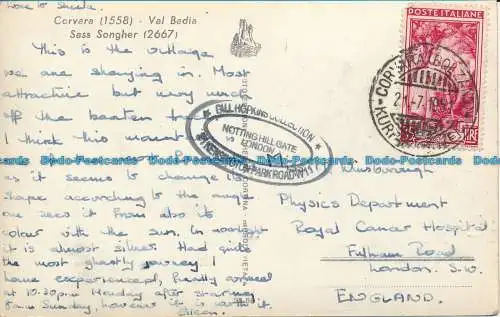 Love to Sheila
Corvara (1558) - Val Badia
Sass Songher (2667)
This is the village
we are staying in. Most
attractive but very much
off the beaten
I think this mount
as it seems to change
shape according to the angle
one sees it from also its
colour with the sun. In moonlight
it is almost silver. Had quite
the most ghastly journey I
have experienced, finally arrived
at 10.30pm Monday after starting
8am Sunday, however it is worth it.
Eileen.
POSTE ITALIANE
LIRE
CORVARA
BILL HOPKINS COLLECTION
NOTTING HILL GATE
LONDON
KENSINGTON PARK ROAD W11
Winsborough
Physics Department
Royal Cancer Hospital
Fulham Road
London. S.W.
ENGLAND.
Dodo-Postcards Dodo-Postcards Dodo-Postcards Dodo-Postcards